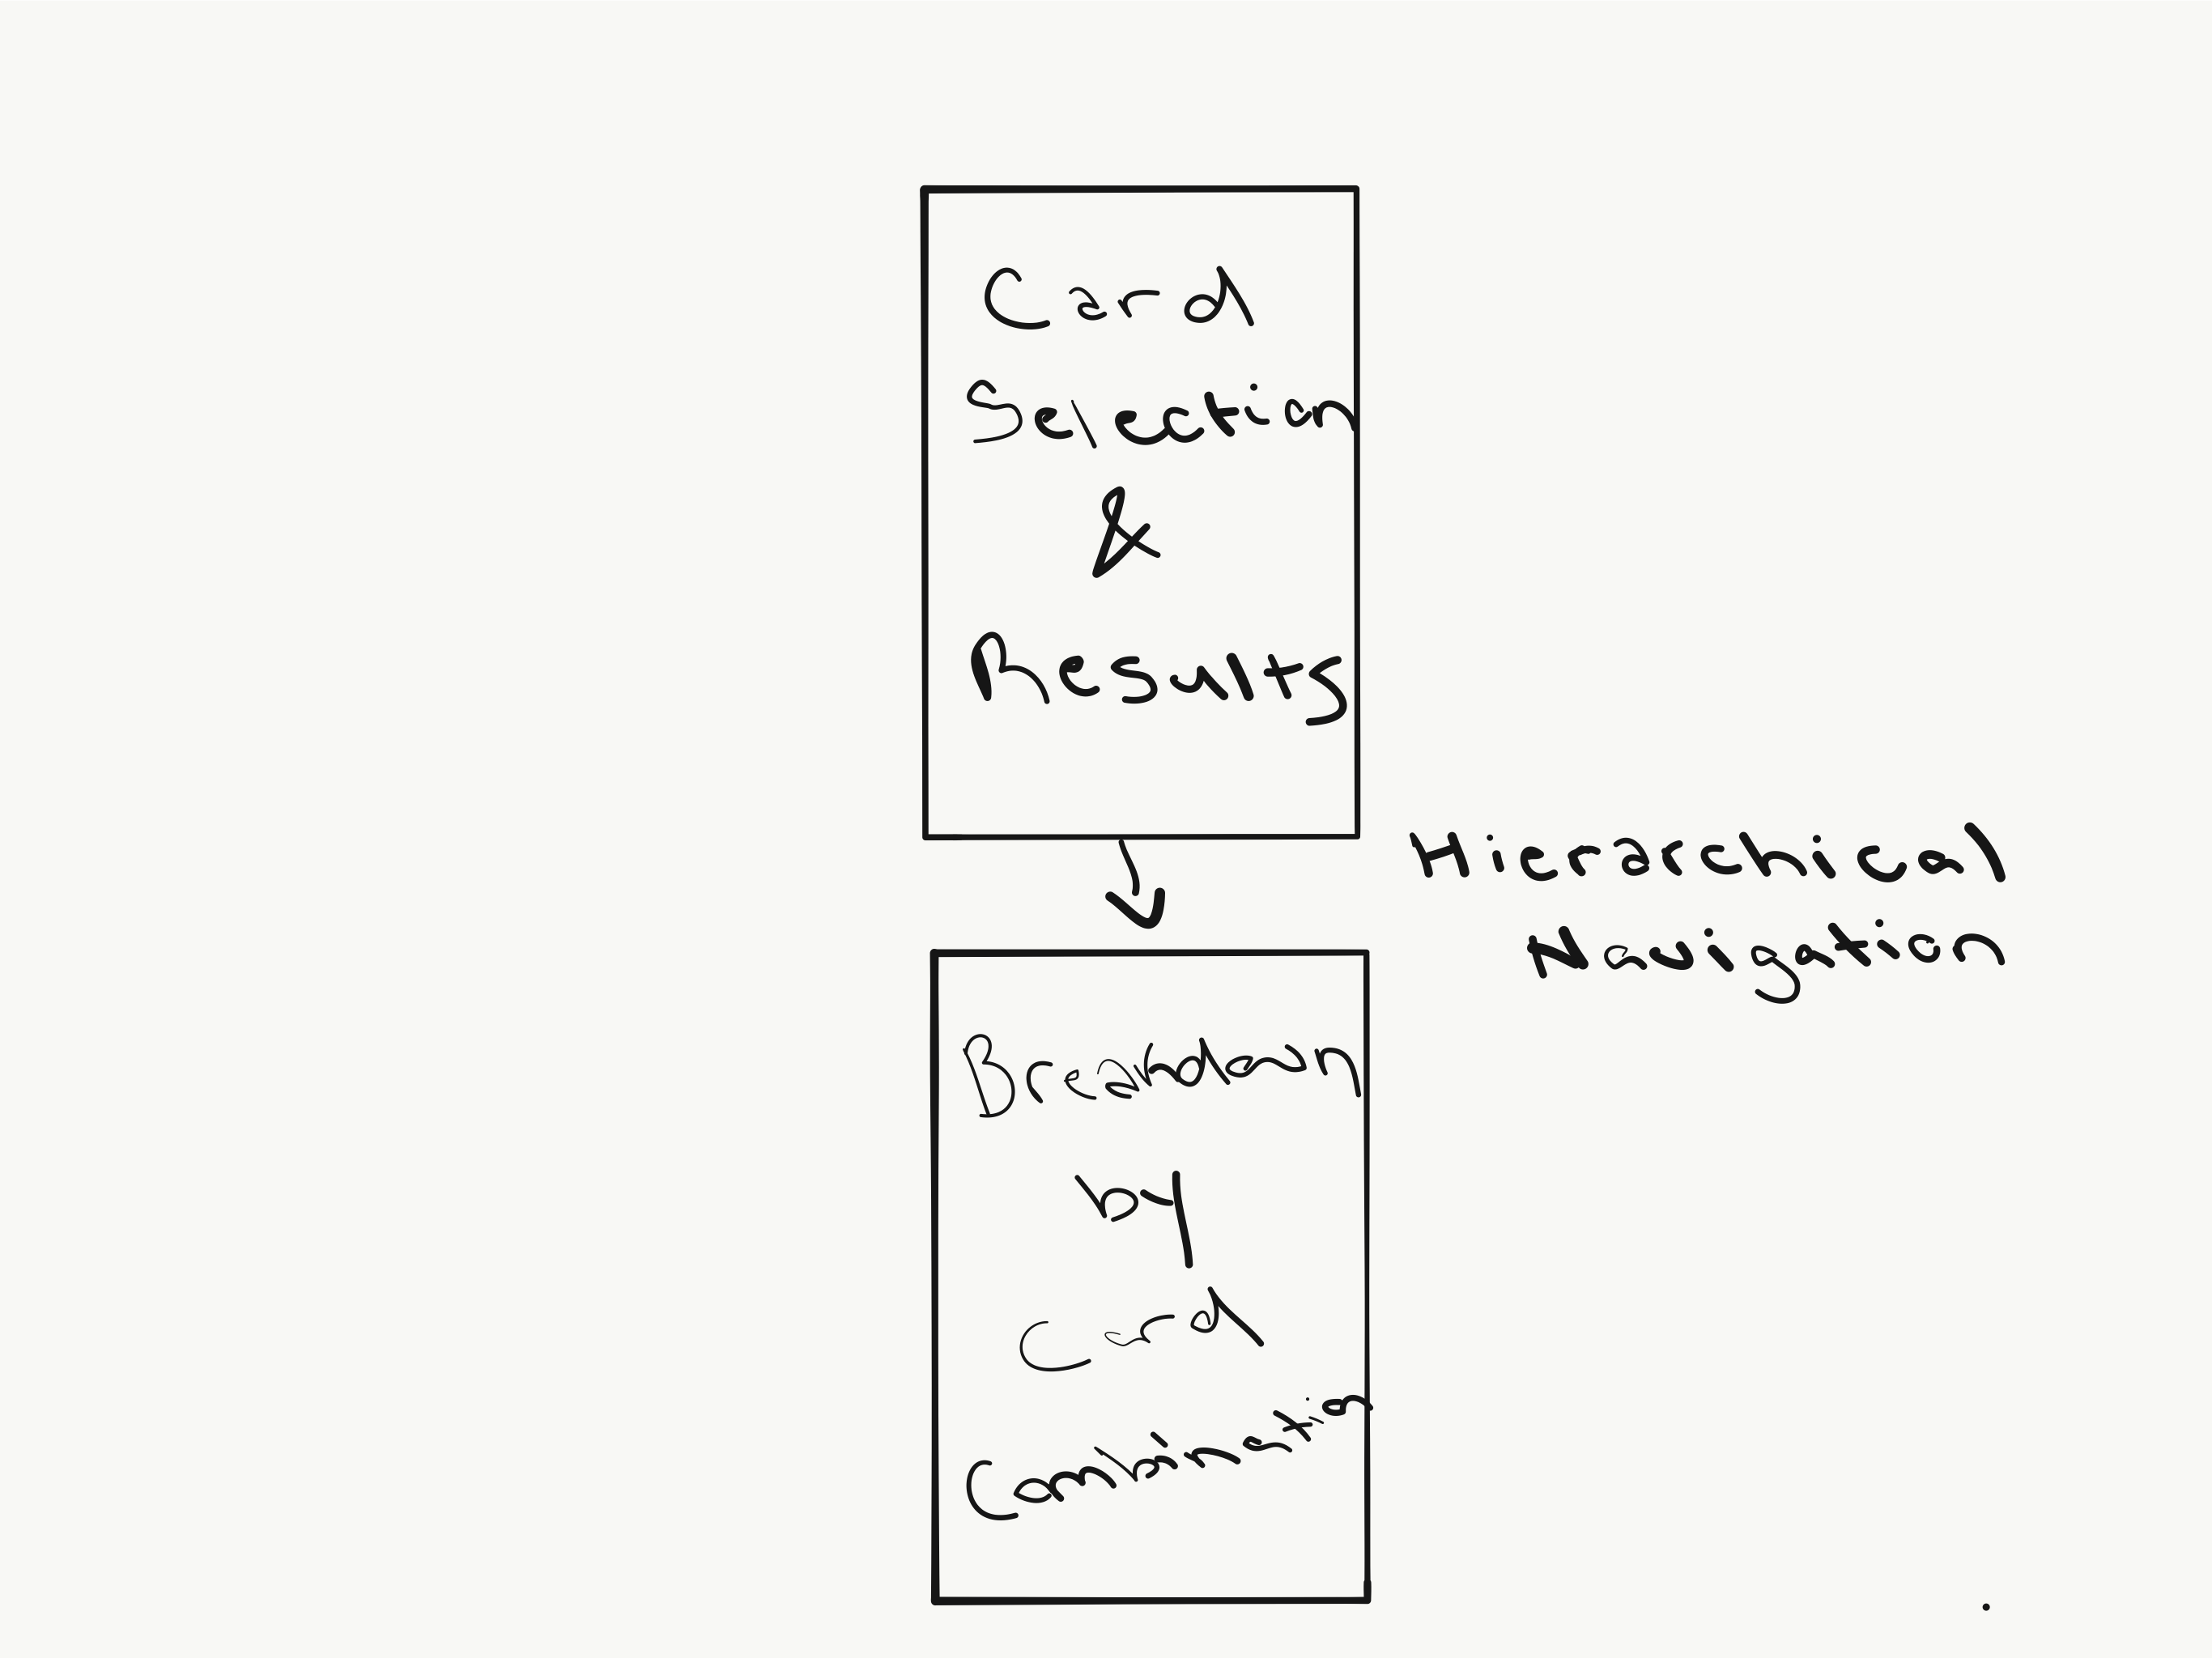 Card
Selection
&
Results
Hierarchical
Navigation
Breakdown
by
Card
Combination